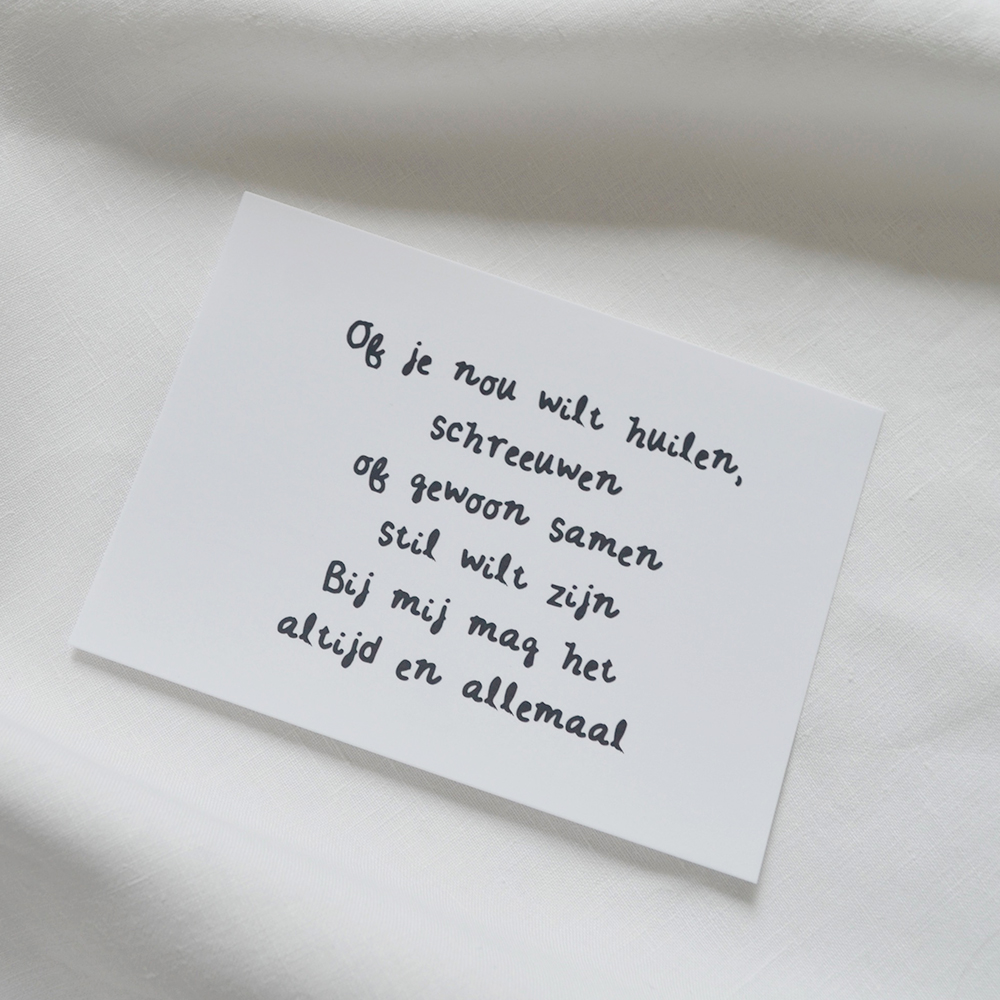 Of je nou wilt huilen,
schreeuwen
of gewoon samen
stil wilt zijn
Bij mij mag het
altijd en allemaal